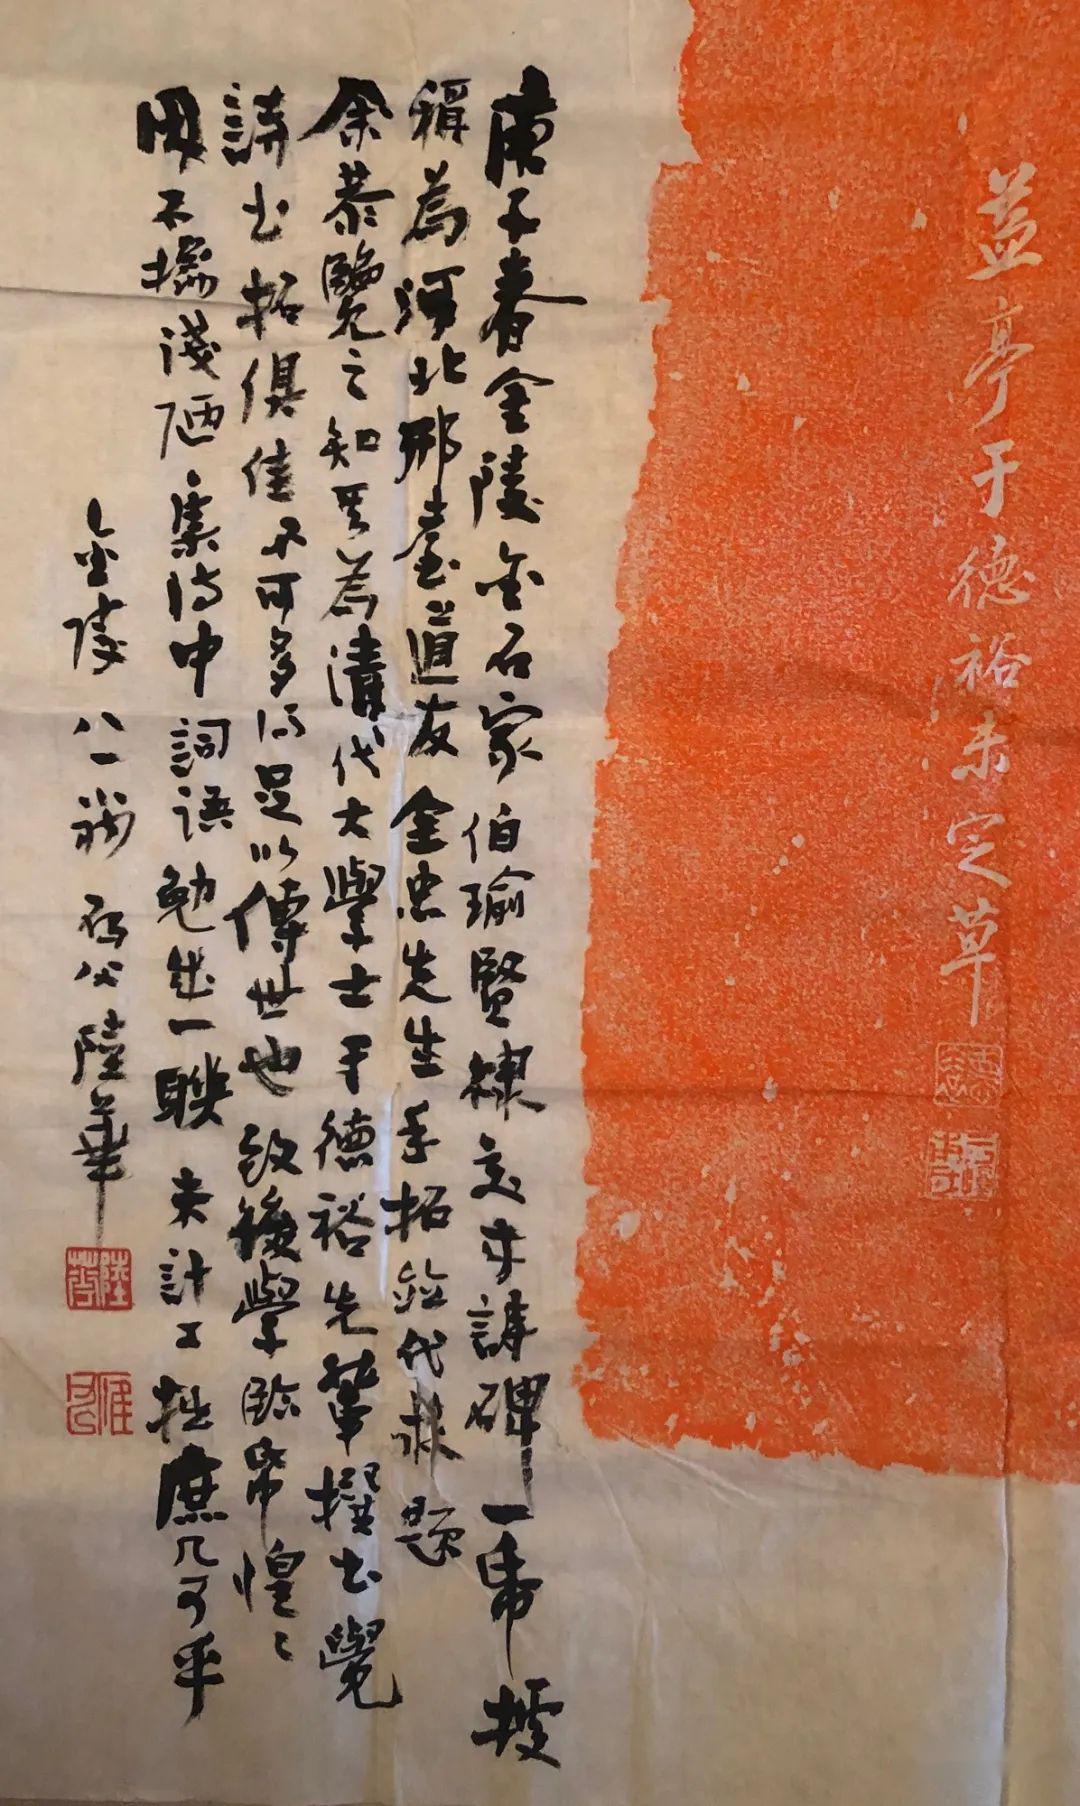 益亭于德裕未定草
庚子春金陵金石家伯瑜賢棣交來詩碑一帋據
稱為河北邢臺道友金忠先生手拓並代求題
余恭覽之知其為清代大學士于德裕先輩撰书覺
詩书拓俱佳不可多得足以傳世也致後學臨帋惶〻
因不揣淺陋集詩中詞語勉成一聯未計工拙庶几可乎
金陵八一叟石公陸華